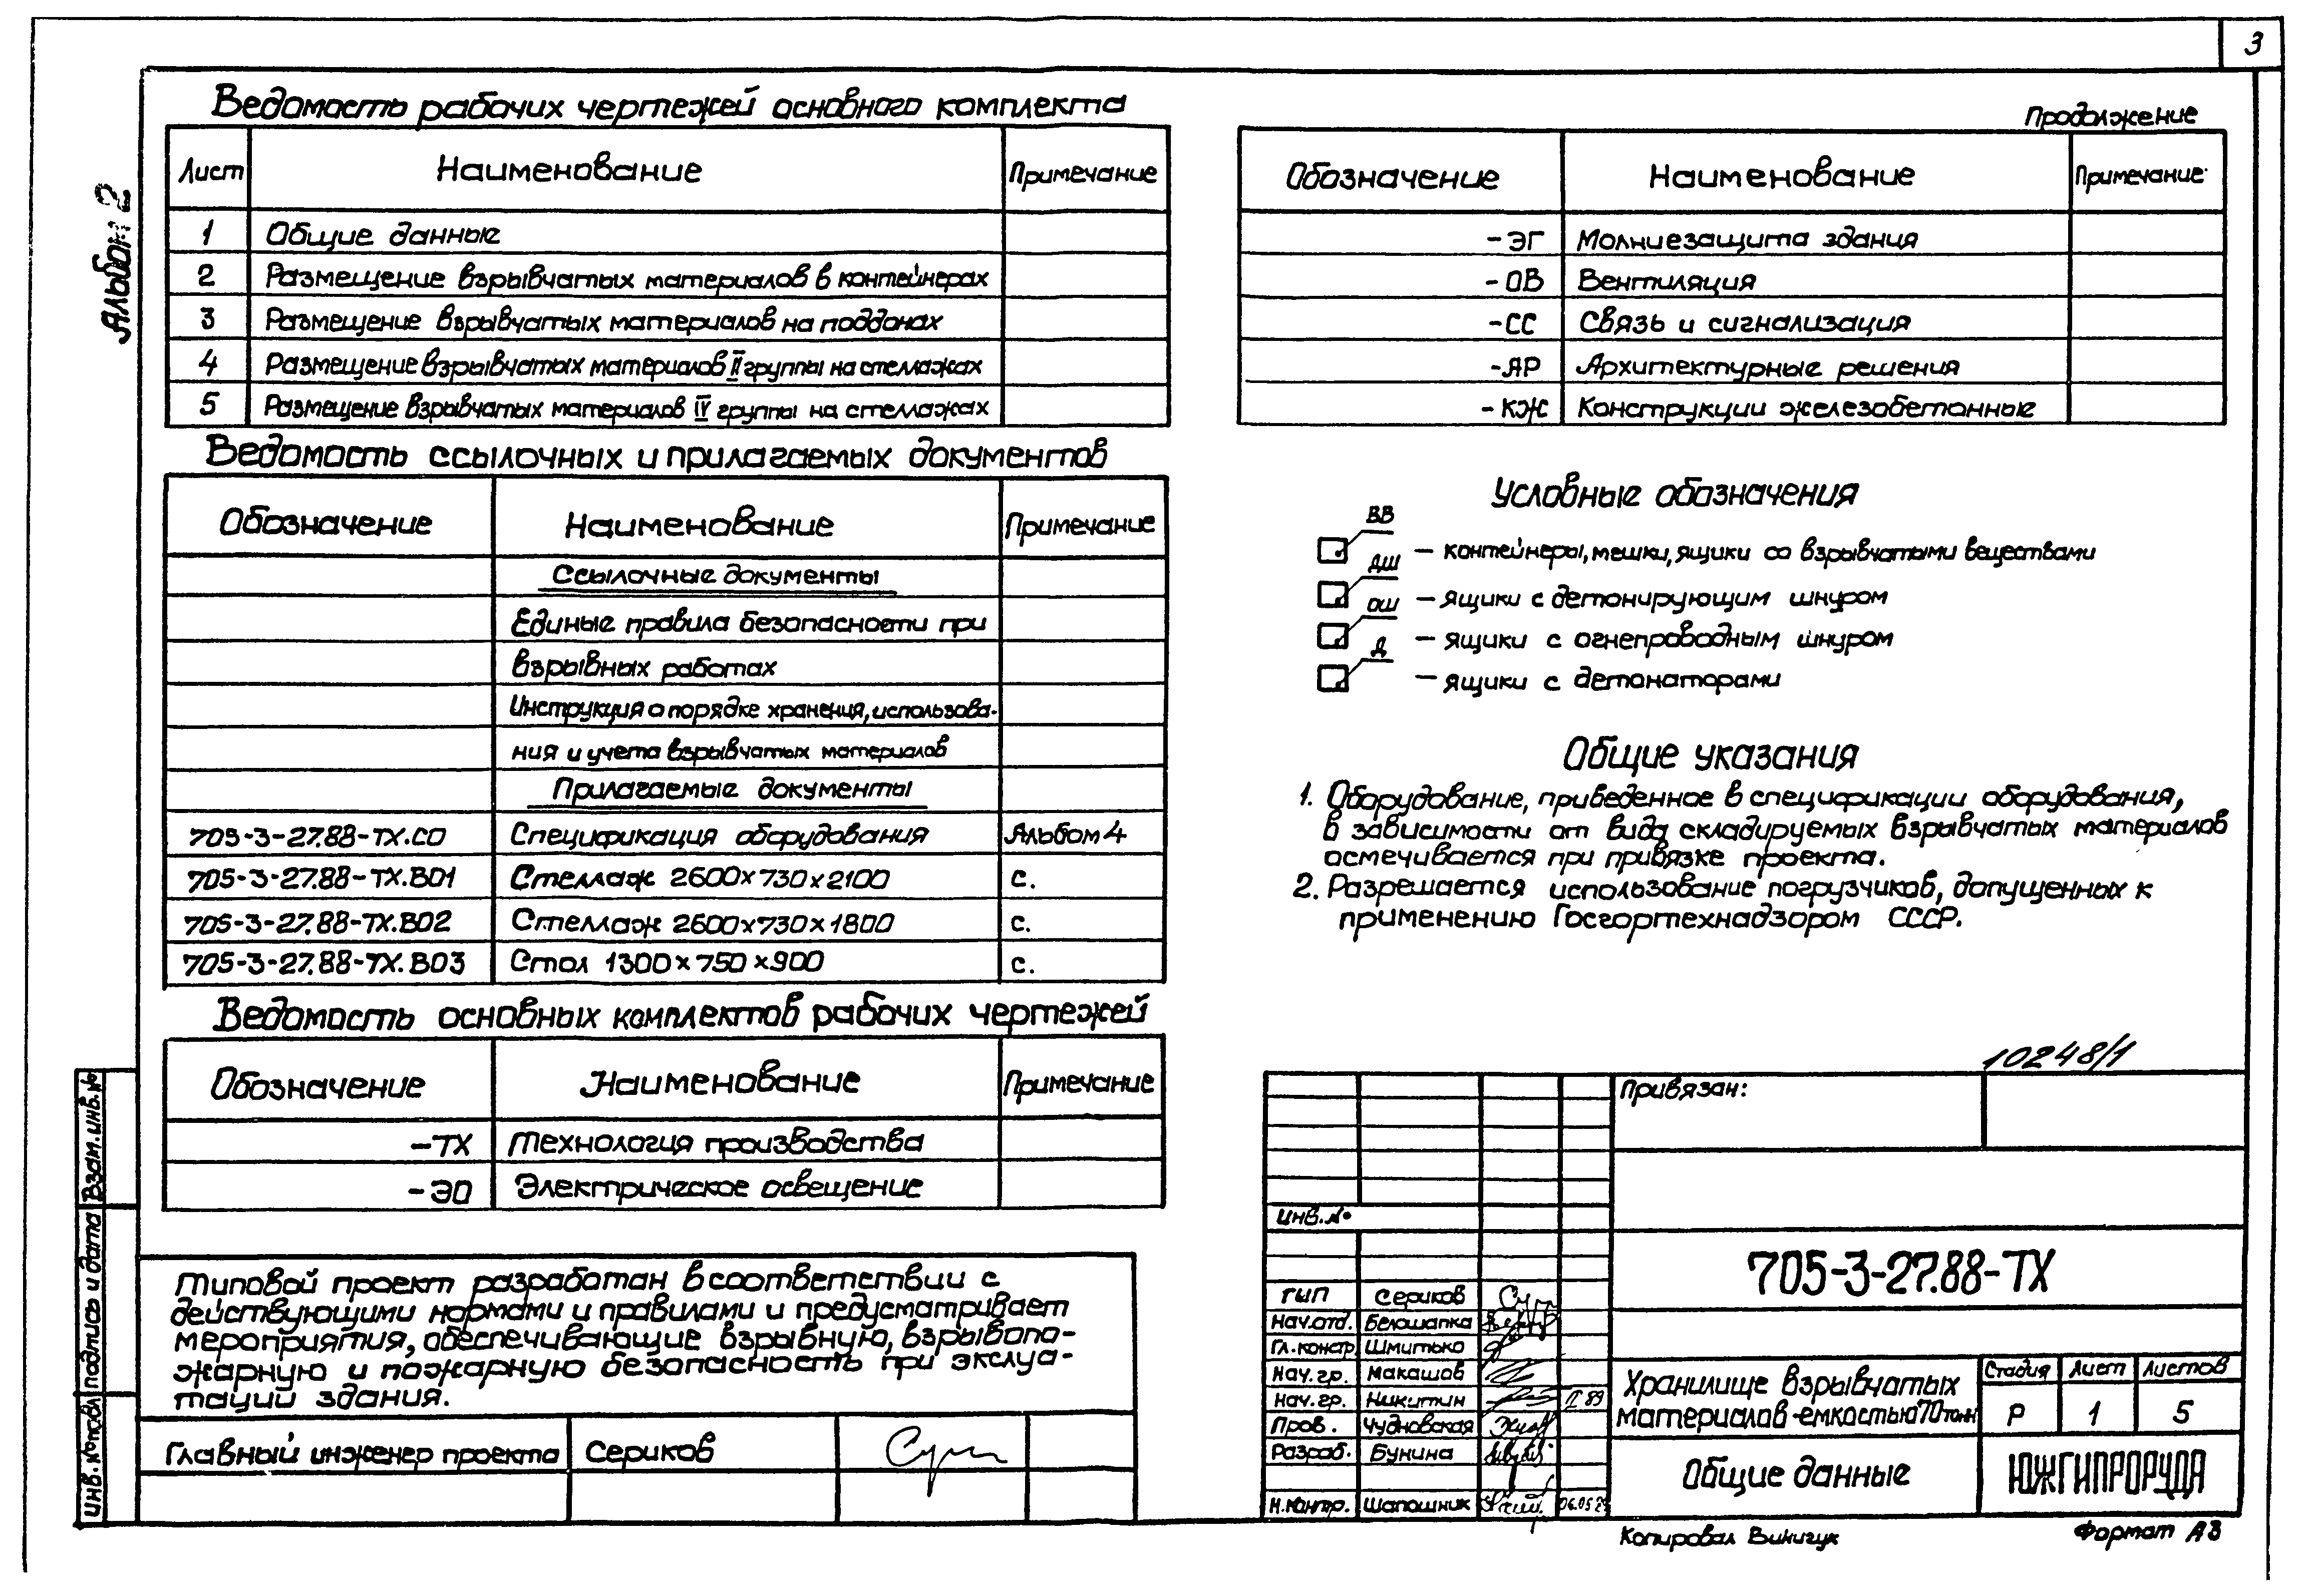 3
Альбом 2
Ведомость рабочих чертежей основного комплекта
Лист Наименование Примечание
1 Общие данные
2 Размещение взрывчатых материалов в контейнерах
3 Размещение взрывчатых материалов на поддонах
4 Размещение взрывчатых материалов II группы на стеллажах
5 Размещение взрывчатых материалов IV группы на стеллажах
Ведомость ссылочных и прилагаемых документов
Обозначение Наименование Примечание
Ссылочные документы
Единые правила безопасности при
взрывных работах
Инструкция о порядке хранения, использова-
ния и учета взрывчатых материалов
Прилагаемые документы
705-3-27.88-ТХ.СО Спецификация оборудования Альбом 4
705-3-27.88-ТХ.В01 Стеллаж 2600х730х2100 с.
705-3-27.88-ТХ.В02 Стеллаж 2600х730х1800 с.
705-3-27.88-ТХ.В03 Стол 1300х750х900 с.
Ведомость основных комплектов рабочих чертежей
Обозначение Наименование Примечание
-ТХ Технология производства
-ЭО Электрическое освещение
Типовой проект разработан в соответствии с
действующими нормами и правилами и предусматривает
мероприятия, обеспечивающие взрывную, взрывопо-
жарную и пожарную безопасность при эксплуа-
тации здания.
Главный инженер проекта Сериков
Взам.инв.№
Подпись и дата
Инв.№ подл
Продолжение
Обозначение Наименование Примечание
-ЭГ Молниезащита здания
-ОВ Вентиляция
-СС Связь и сигнализация
-АР Архитектурные решения
-КЖ Конструкции железобетонные
Условные обозначения
ВВ - контейнеры, мешки, ящики со взрывчатыми веществами
ДШ - ящики с детонирующим шнуром
ОШ - ящики с огнепроводным шнуром
Д - ящики с детонаторами
Общие указания
1. Оборудование, приведенное в спецификации оборудования,
в зависимости от вида складируемых взрывчатых материалов
осмечивается при привязке проекта.
2. Разрешается использование погрузчиков, допущенных к
применению Госгортехнадзором СССР.
10248/1
Привязан:
Инв.№
705-3-27.88-ТХ
ГИП Сериков
Нач.отд. Белошапка
Гл.констр. Шмитько
Нач.гр. Макашов
Нач.гр. Никитин II 89
Пров. Чудновская
Разраб. Бунина
Н.контр. Шапошник
Хранилище взрывчатых
материалов емкостью 70 тонн
Стадия Лист Листов
Р 1 5
Общие данные
ЮЖГИПРОРУДА
Копировал
Формат А3